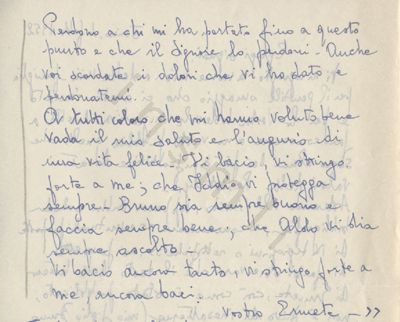 Perdono a chi mi ha portato fino a questo
punto e che il Signore lo perdoni - Anche
voi scordate i dolori che vi ho dato e
perdonatemi.
A tutti coloro che mi hanno voluto bene
vada il mio saluto e l'augurio di
una vita felice - Vi bacio, vi stringo
forte a me; che Iddio vi protegga
sempre - Bruno sia sempre buono e
faccia sempre bene, che Aldo vi dia
sempre ascolto -
Vi bacio ancora tanto, vi stringo forte a
me, ancora baci.
Vostro Ermete - ››